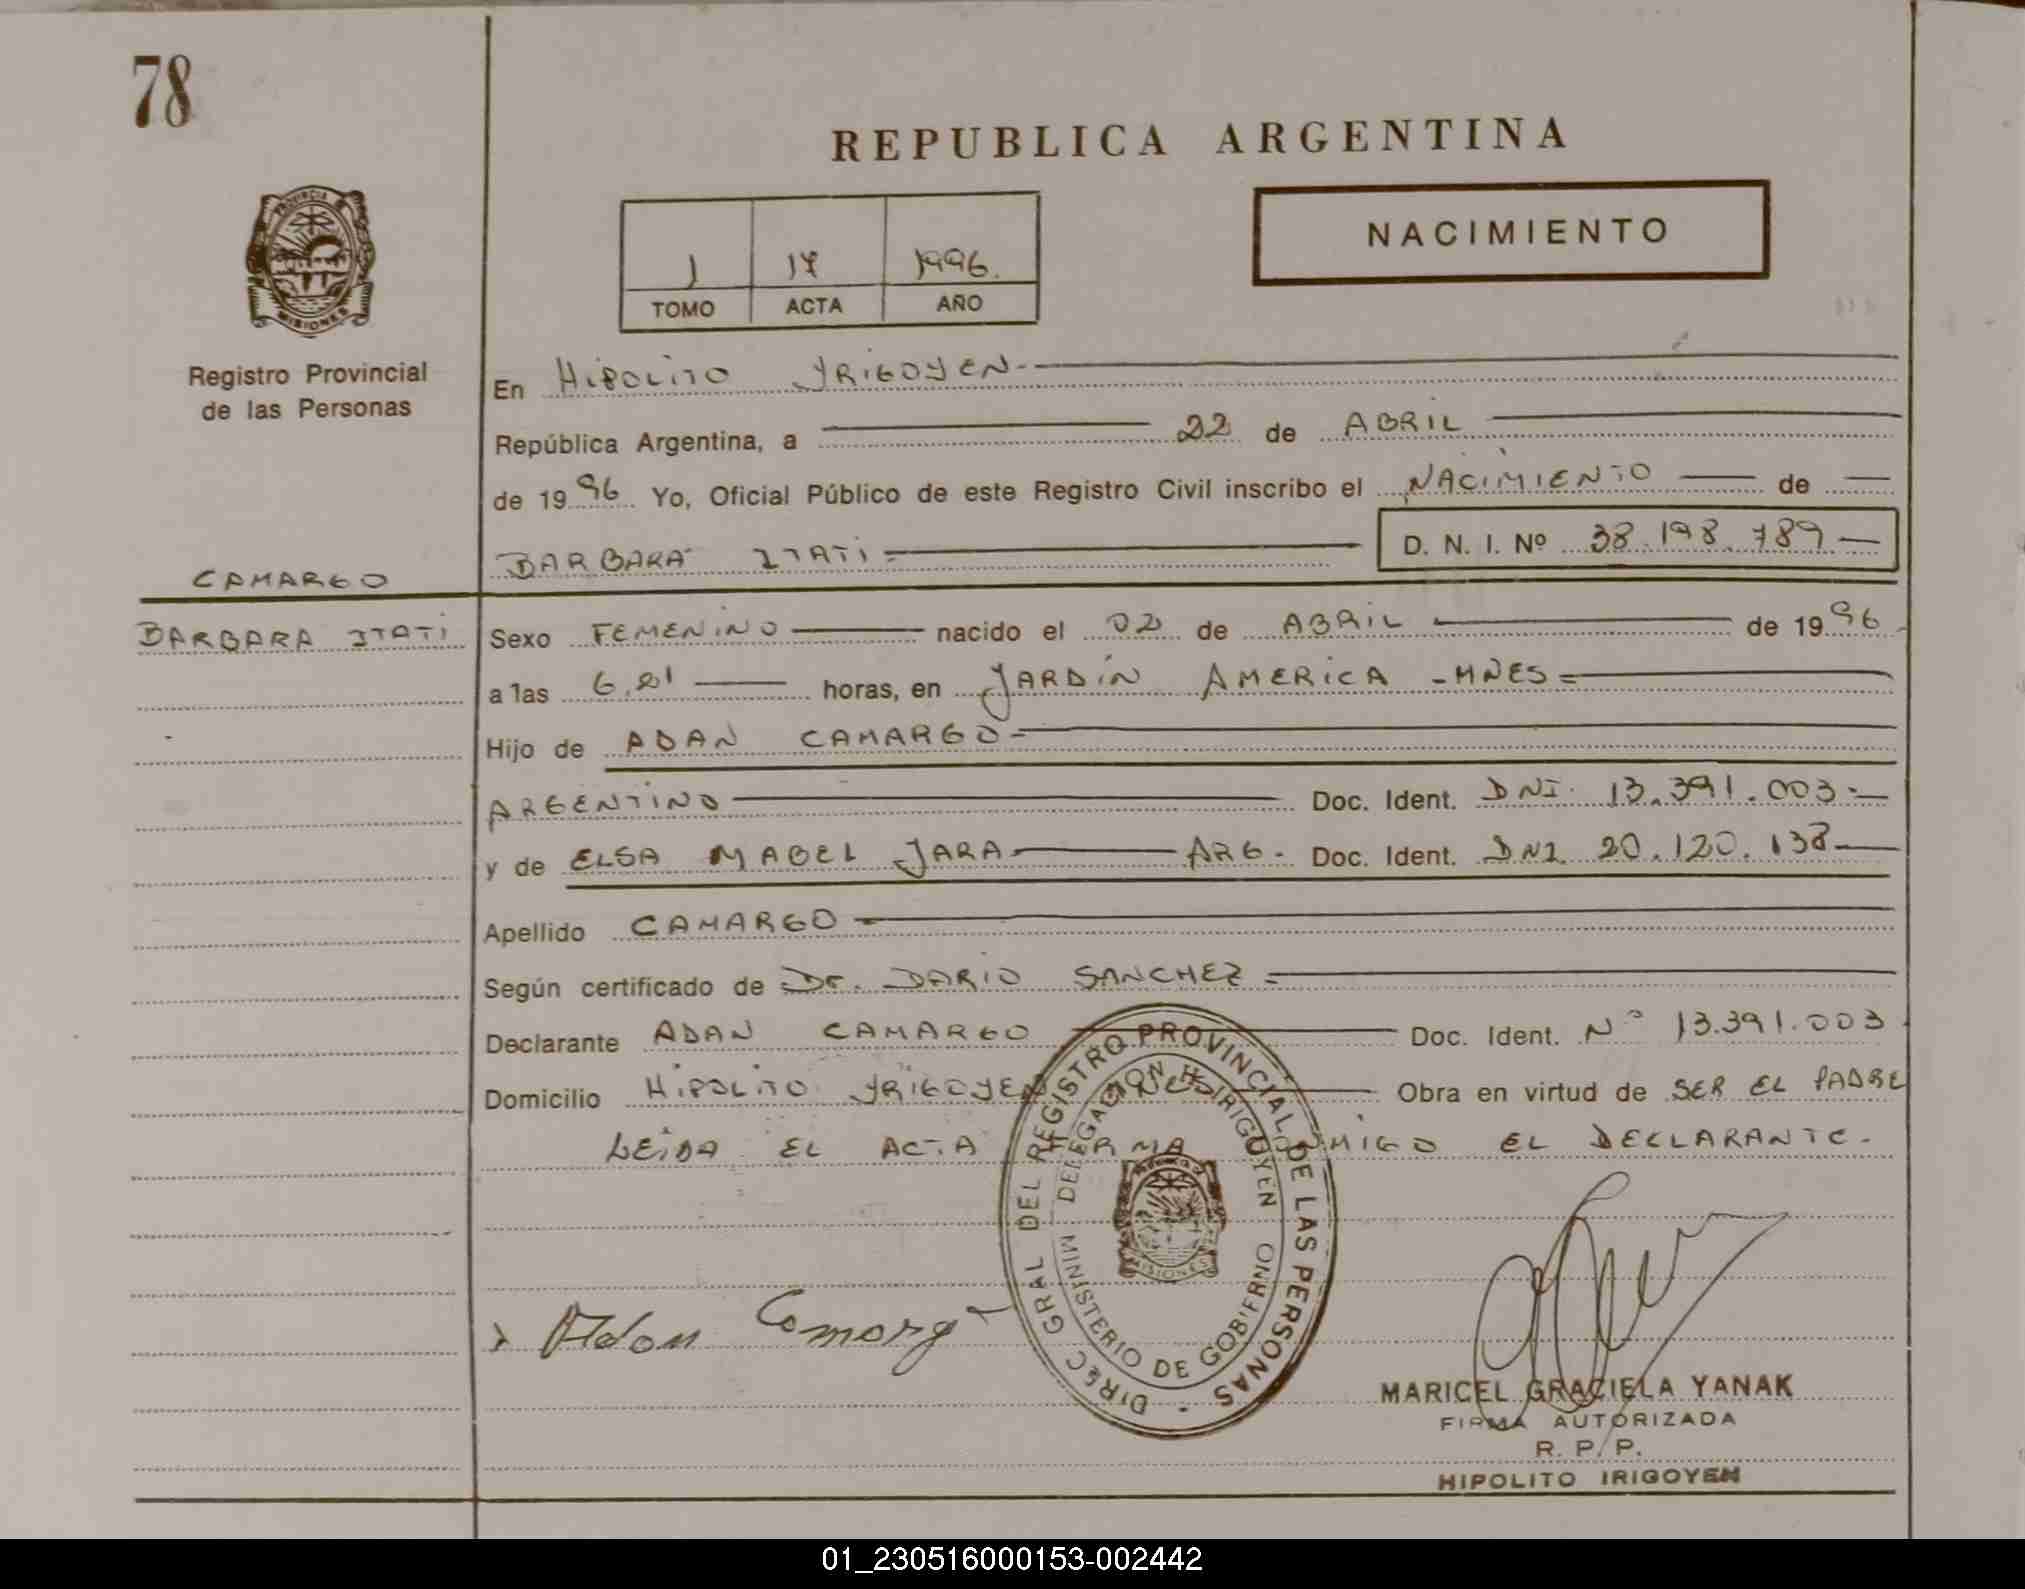 78
REPUBLICA ARGENTINA
PROVINCIA DE
MISIONES
Registro Provincial
de las Personas
NACIMIENTO
1 17 1996.
TOMO ACTA AÑO
En HIPOLITO YRIGOYEN-
República Argentina, a 22 de ABRIL
de 1996 Yo, Oficial Público de este Registro Civil inscribo el NACIMIENTO de
BARBARA ITATI = D. N. I. Nº 38.198.789 -
CAMARGO
BARBARA ITATI
Sexo FEMENINO nacido el 02 de ABRIL de 1996
a las 6,21 horas, en JARDIN AMERICA - MNES =
Hijo de ADAN CAMARGO =
ARGENTINO Doc. Ident. DNI. 13.391.003.-
y de ELSA MABEL JARA ARG. Doc. Ident. DNI. 20.120.138
Apellido CAMARGO
Según certificado de Dr. DARIO SANCHEZ =
Declarante ADAN CAMARGO Doc. Ident. Nº 13.391.003
Domicilio HIPOLITO YRIGOYEN Obra en virtud de SER EL PADRE
LEIDA EL ACTA FIRMA CONMIGO EL DECLARANTE.
DIREC. GRAL DEL REGISTRO PROVINCIAL DE LAS PERSONAS
DELEGACION H. IRIGOYEN
MINISTERIO DE GOBIERNO
MISIONES
Adan Camargo
MARICEL GRACIELA YANAK
FIRMA AUTORIZADA
R. P. P.
HIPOLITO IRIGOYEN
01_230516000153-002442